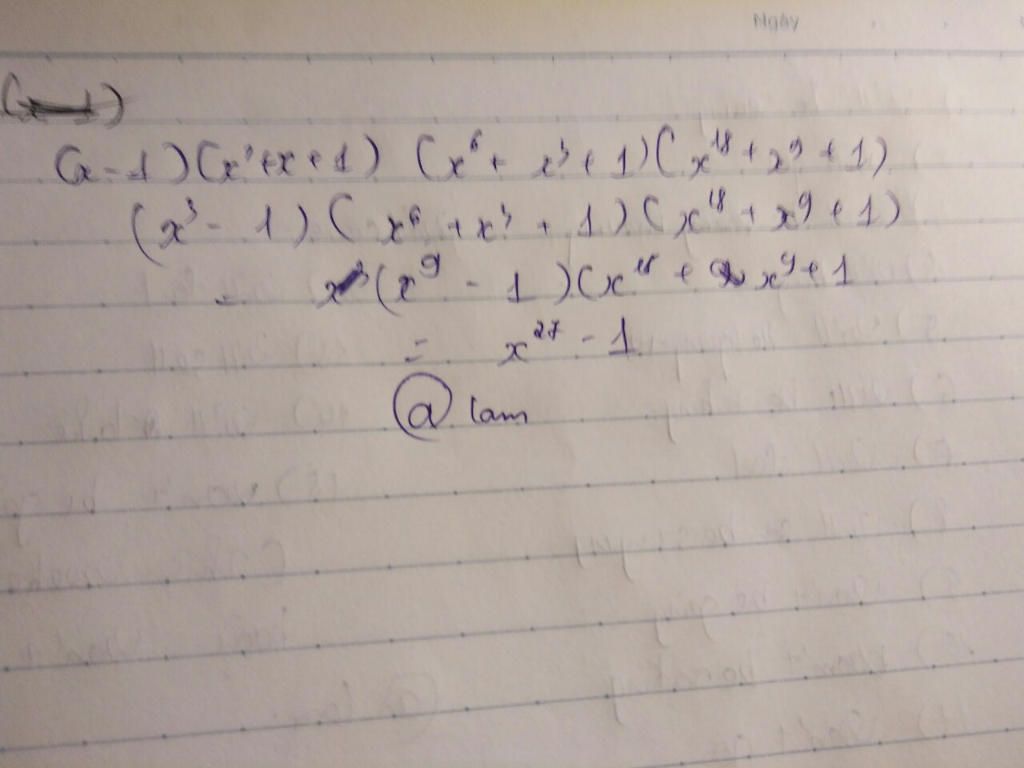 Ngày
(x-1)(x²+x+1) (x⁶+x³+1)(x¹⁸+x⁹+1)
(x³-1)(x⁶+x³+1)(x¹⁸+x⁹+1)
= (x⁹-1)(x¹⁸+x⁹+1
= x²⁷-1
@ lam